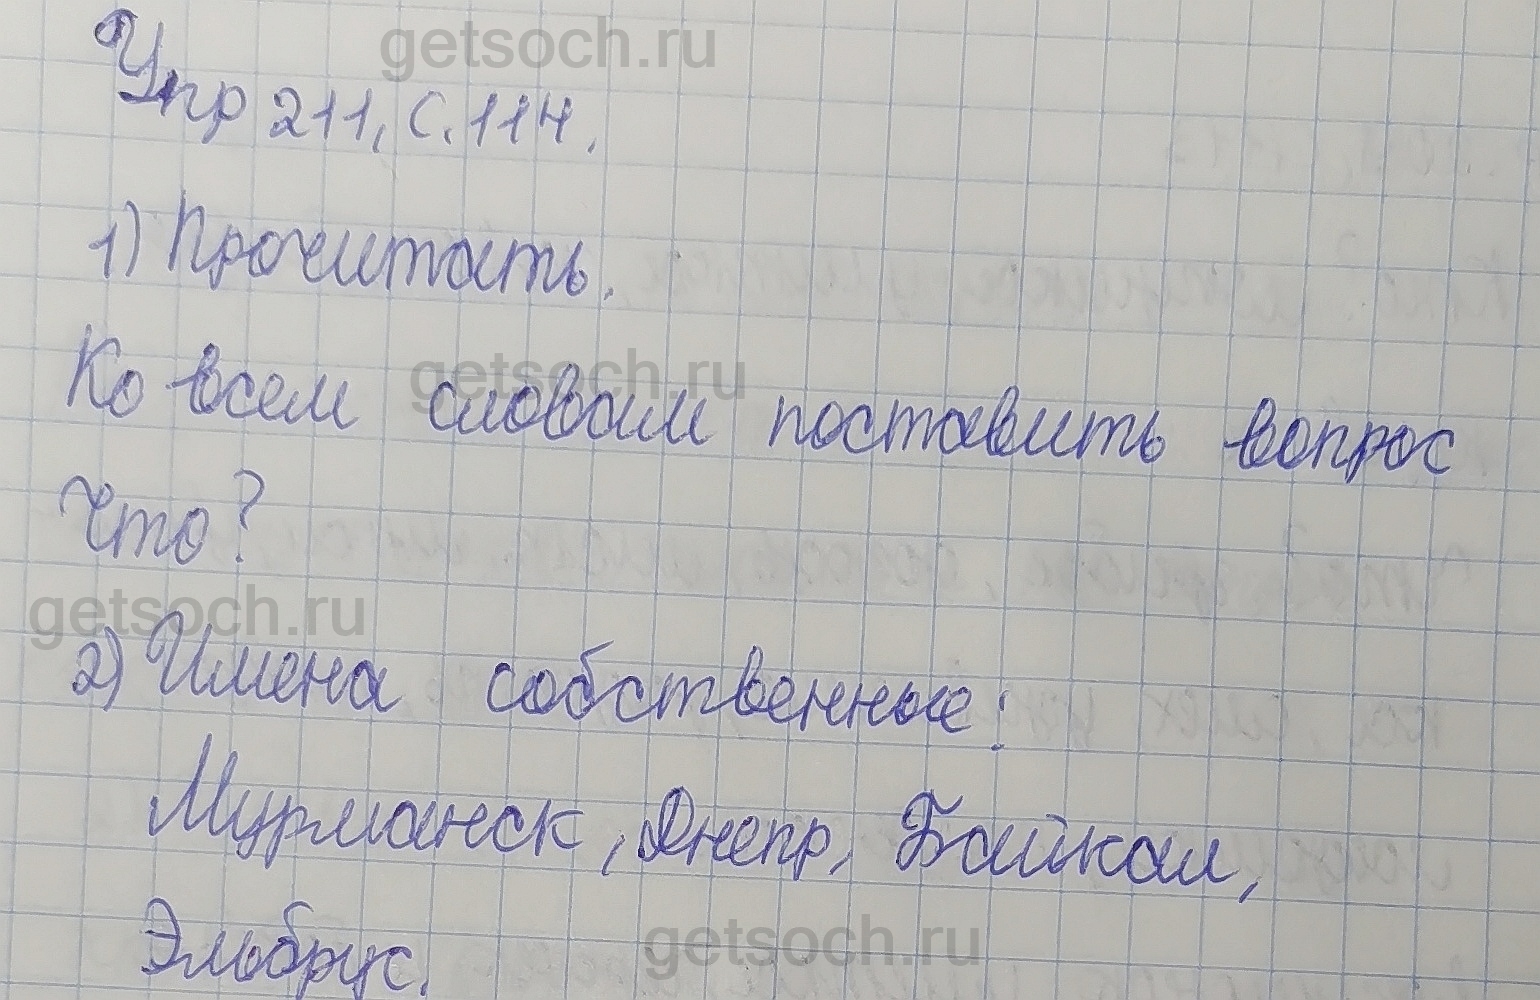 getsoch.ru
Упр 211, с. 114.
1) Прочитать.
getsoch.ru
Ко всем словам поставить вопрос
что?
getsoch.ru
2) Имена собственные:
Мурманск, Днепр, Байкал,
Эльбрус.
getsoch.ru